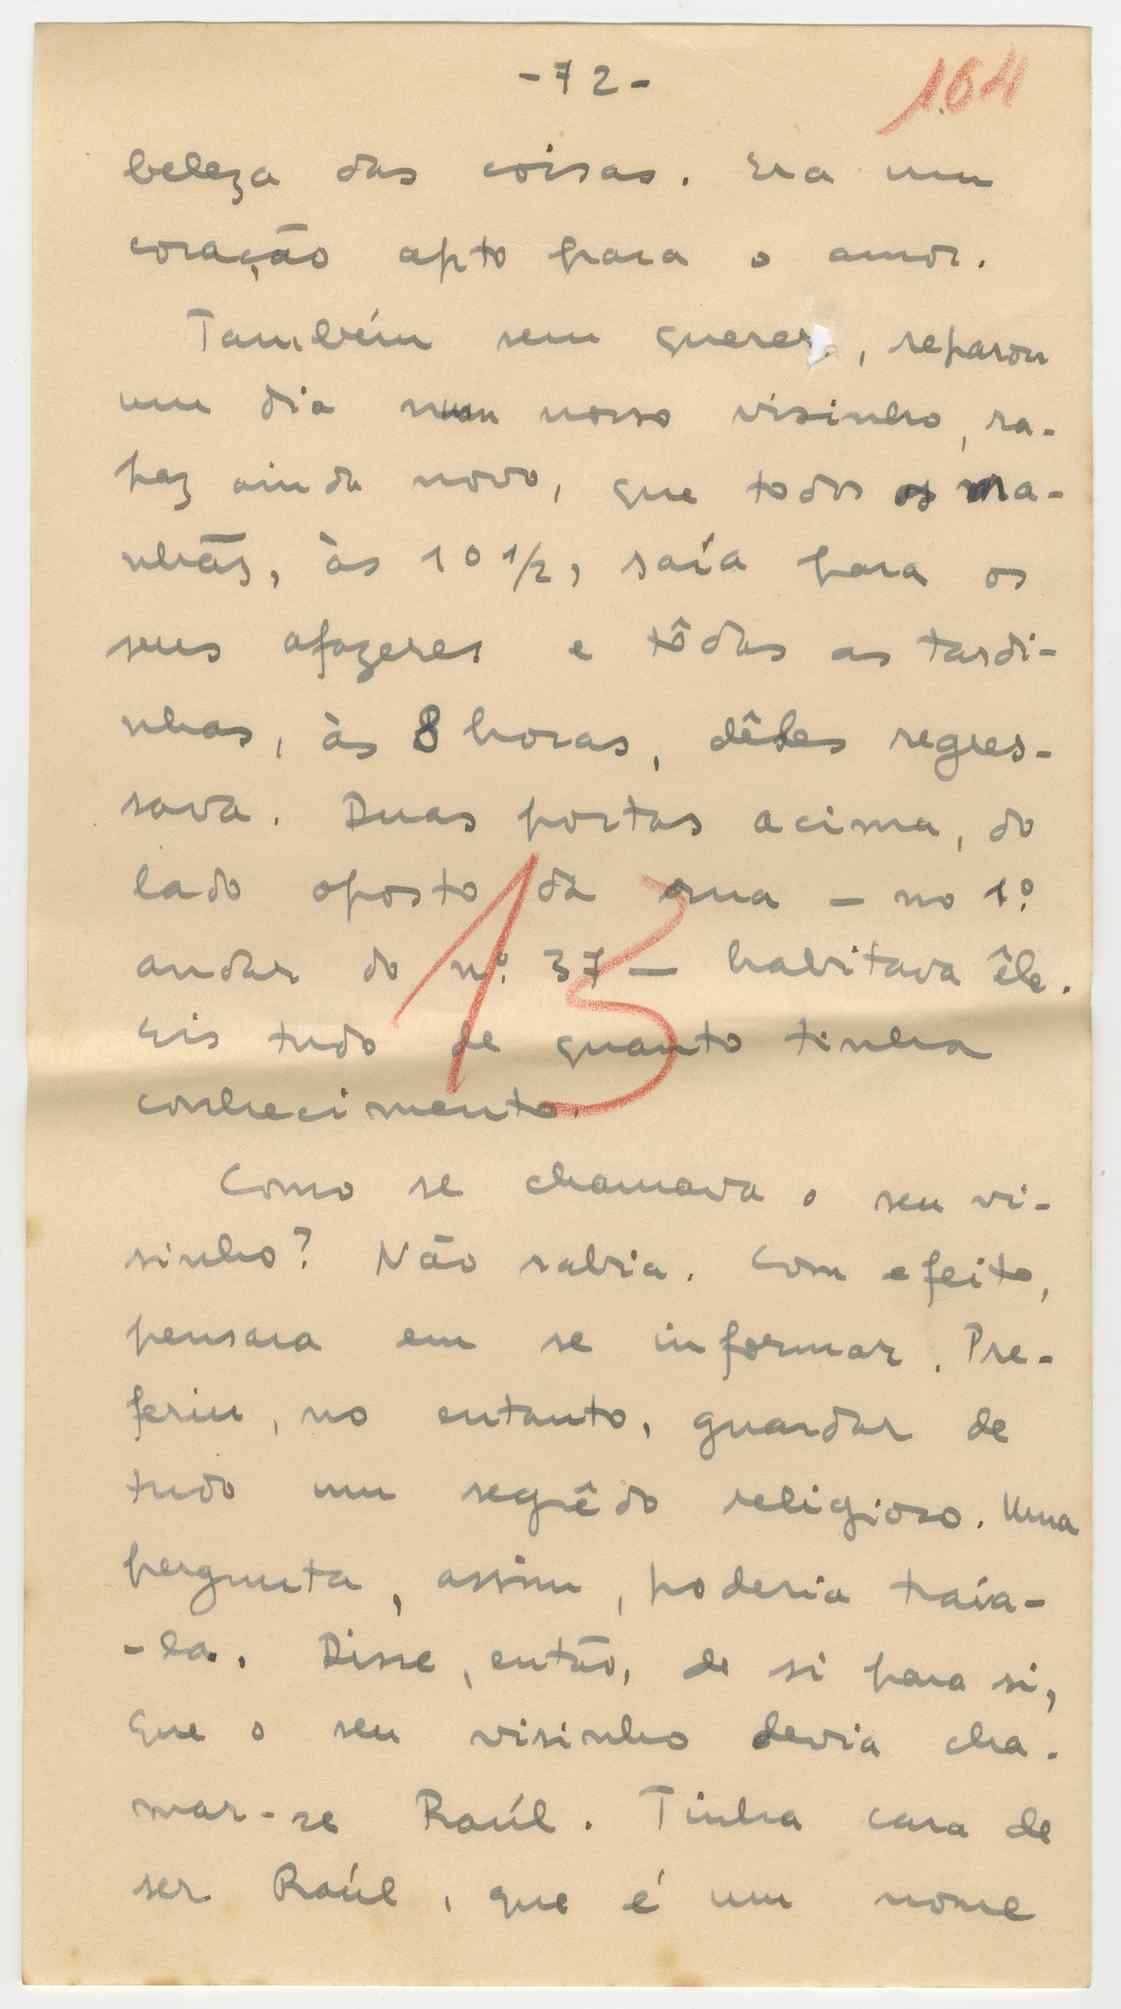 -72-
164
beleza das coisas. Era um
coração apto para o amor.
Também sem querer, reparou
um dia num nosso visinho, ra-
paz ainda novo, que todas as ma-
nhãs, às 10 1/2, saía para os
seus afazeres e tôdas as tardi-
nhas, às 8 horas, dêles regres-
sava. Duas portas acima, do
lado oposto da rua — no 1º
andar do nº 37 — habitava êle.
Eis tudo de quanto tinha
conhecimento.
13
Como se chamava o seu vi-
sinho? Não sabia. Com efeito,
pensara em se informar. Pre-
feriu, no entanto, guardar de
tudo um segrêdo religioso. Uma
pergunta, assim, poderia traía-
-la. Disse, então, de si para si,
que o seu visinho devia cha-
mar-se Raúl. Tinha cara de
ser Raúl, que é um nome